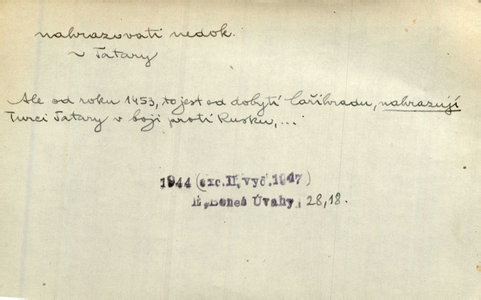 nahrazovati nedok.
v Tatary
Ale od roku 1453, to jest od dobytí Cařihradu, nahrazují
Turci Tatary v boji proti Rusku,...
1944 (exc. II, vyd. 1947)
E. Beneš Úvahy, 28,18.